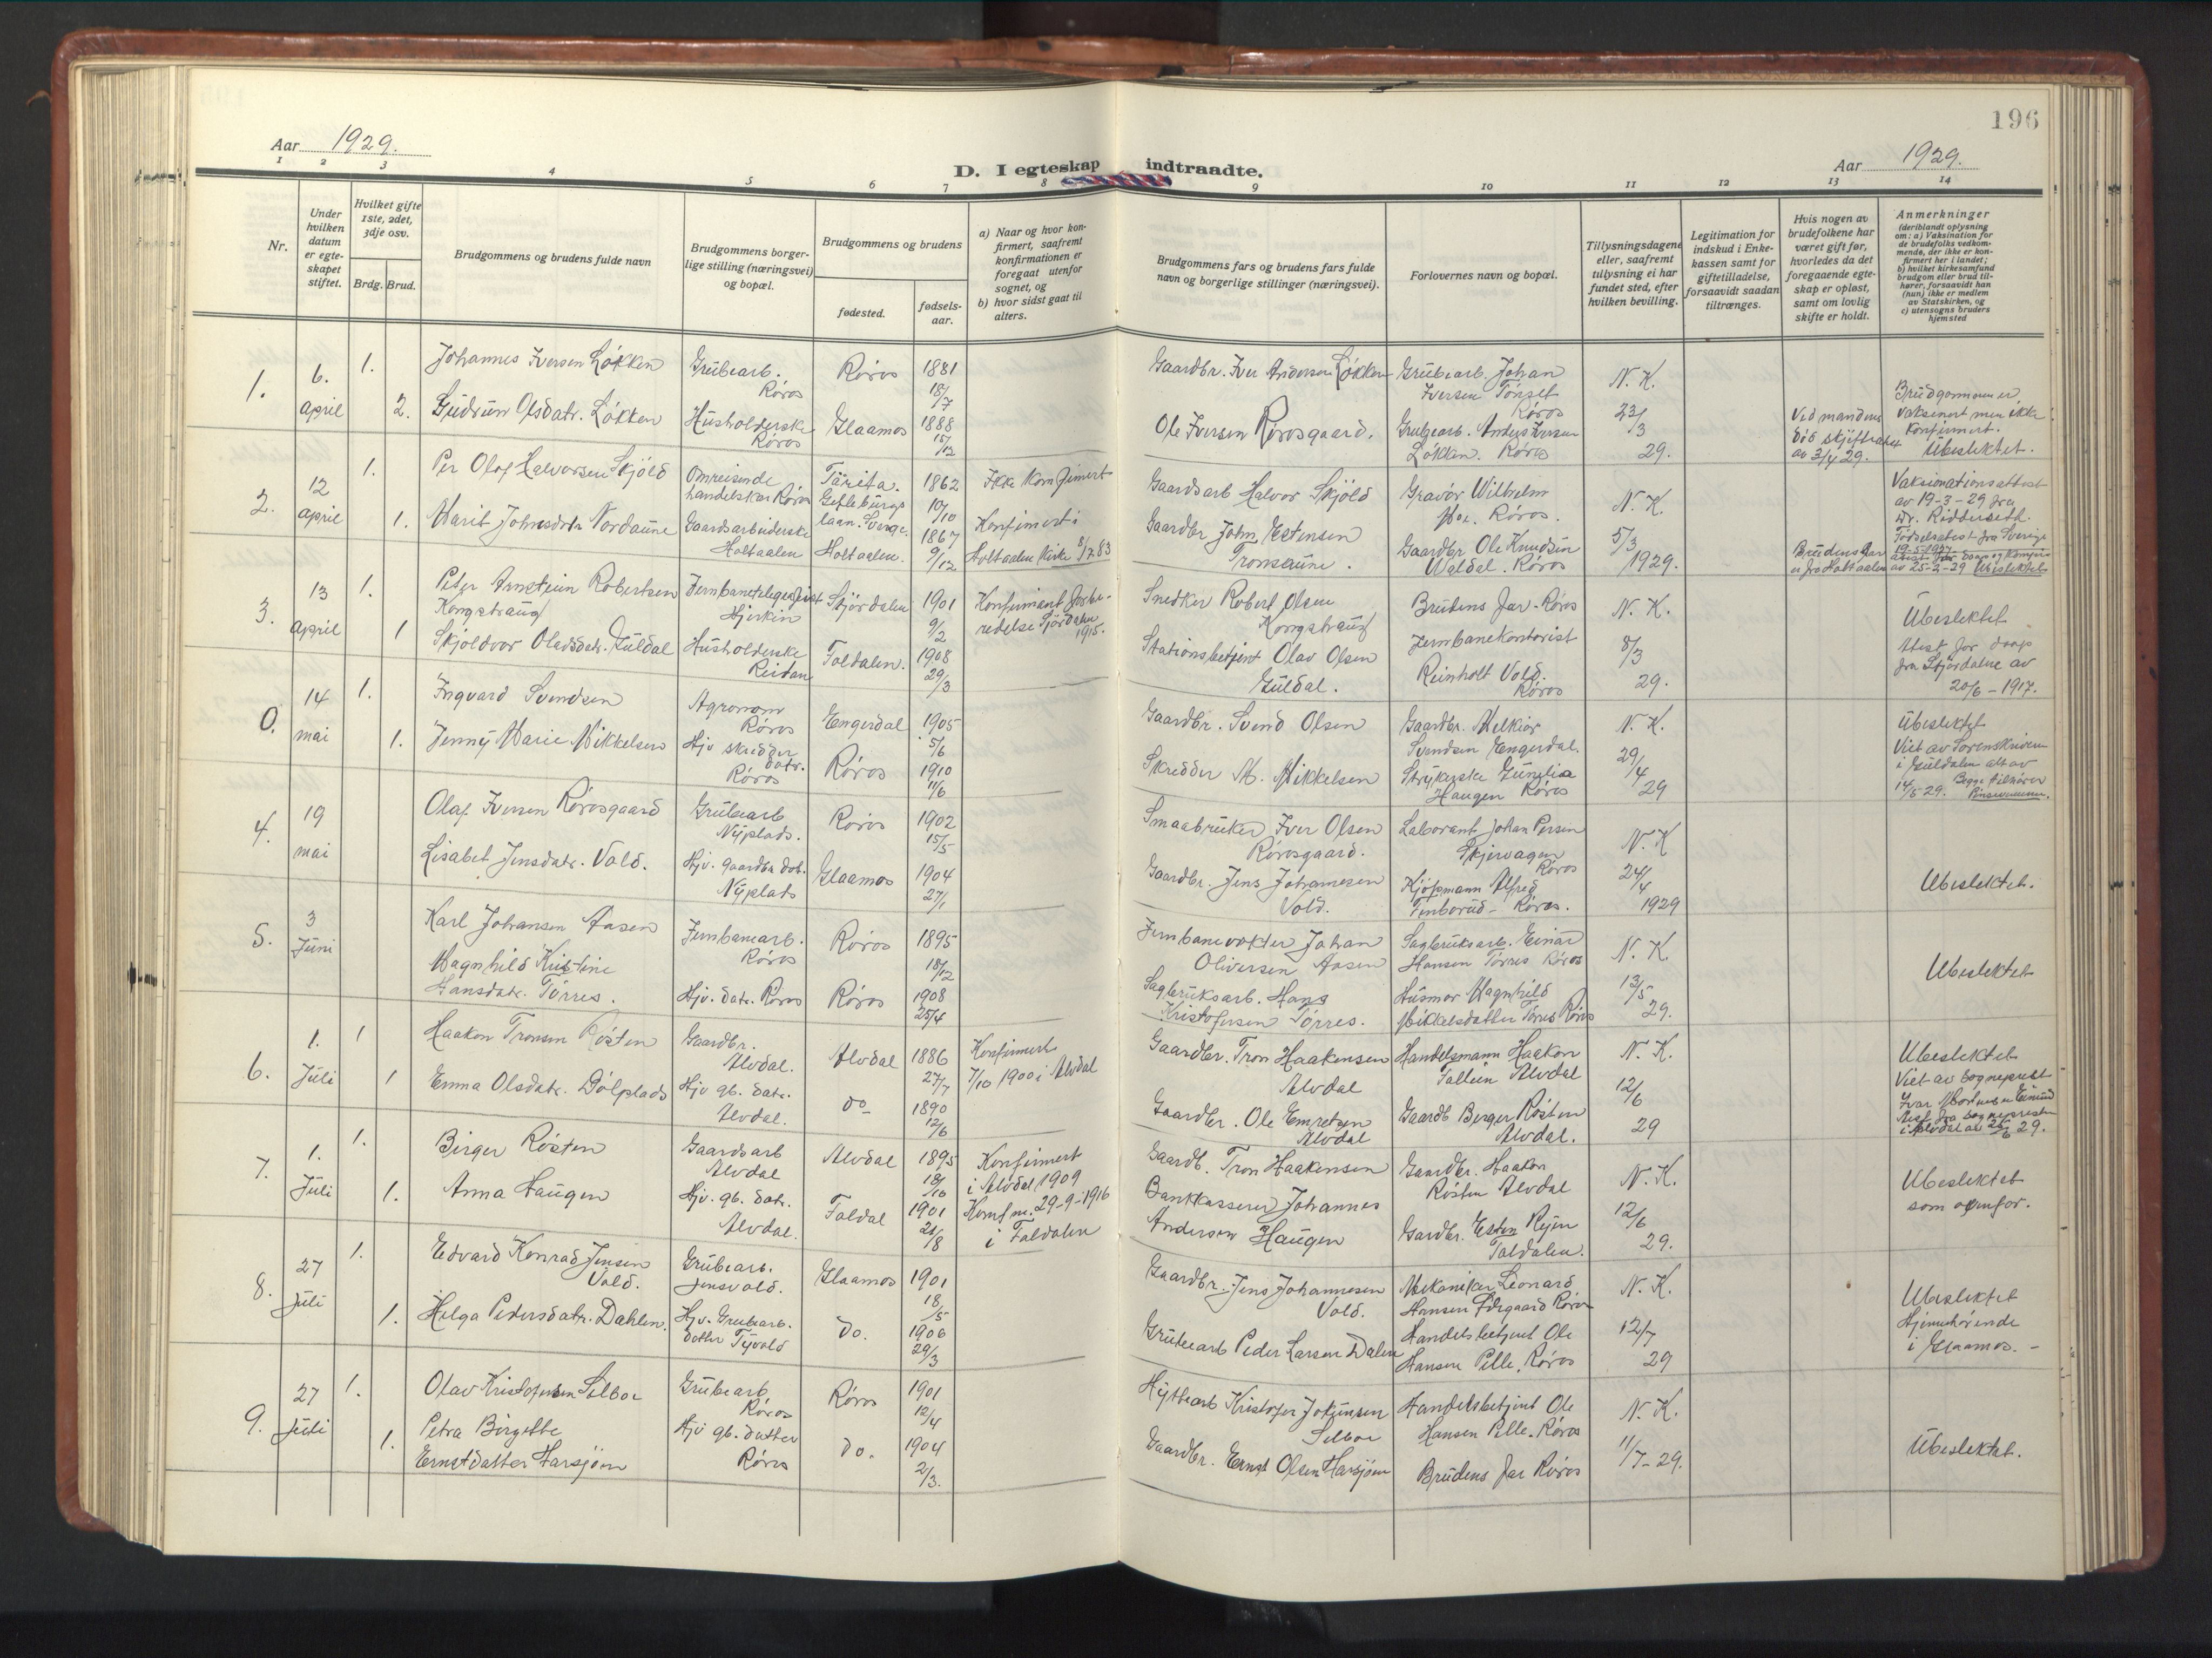 196
Aar 1929.
D. I egteskap indtraadte.
Aar 1929.
1 2 3 4 5 6 7 8 9 10 11 12 13 14
Nr.
Under hvilken datum er egteskapet stiftet.
Hvilket gifte 1ste, 2det, 3dje osv.
Brdg. Brud.
Brudgommens og brudens fulde navn
Brudgommens borgerlige stilling (næringsvei) og bopæl.
Brudgommens og brudens
fødested.
fødselsaar.
a) Naar og hvor konfirmert, saafremt konfirmationen er foregaat utenfor sognet, og
b) hvor sidst gaat til alters.
Brudgommens fars og brudens fars fulde navn og borgerlige stillinger (næringsvei).
Forlovernes navn og bopæl.
Tillysningsdagene eller, saafremt tillysning ei har fundet sted, efter hvilken bevilling.
Legitimation for indskud i Enkekassen samt for giftetilladelse, forsaavidt saadan tiltrænges.
Hvis nogen av brudefolkene har været gift før, hvorledes da det foregaaende egteskap er opløst, samt om lovlig skifte er holdt.
Anmerkninger (deriblandt oplysning om: a) Vaksination for de brudefolks vedkommende, der ikke er konfirmert her i landet; b) hvilket kirkesamfund brudgom eller brud tilhører, forsaavidt han (hun) ikke er medlem av Statskirken, og c) utensogns bruders hjemsted
1. 6. april
1. Johannes Iversen Løkken
Grubearb. Røros
Røros
1881 18/7
Gaardbr. Iver Andersen Løkken
Grubearb. Johan Iversen Tønset Røros
N. K.
23/3 29.
2. Gudrun Olsdatr. Løkken
Husholderske Røros
Glaamos
1888 15/12
Ole Iversen Rørosgaard.
Grubearb. Anders Iversen Løkken. Røros
Ved mandens død skifteattest av 3/4 29.
Brudgommen er vaksinert men ikke konfirmert.
Ubeslektet.
2. 12 april
1. Per Olof Halvorsen Skjöld
Omreisende handelskar Røros
Gefleburgs laen. Sverge.
1862 10/10
Ikke konfirmert
Gaardsarb Halvor Skjöld
Gravør Wilhelm Røros.
N. K.
5/3 1929.
1. Marit Johnsdatr Nordaune
Gaardsarbeiderske Holtaalen
Holtaalen.
1867 9/12
Konfirmert i Holtaalen Kirke 8/7 83
Gaardbr John Estensen Tronsaune.
Gaardbr Ole Knudsen Waldal. Røros
Brudens far er fra Holtaalen
Vaksionationsattest av 19-3-29 fra Dr. Ridderseth.
Fødselsattest fra Sverige
av 25-2-29 Ubeslektet
3. 13 april
1. Peter Arnstein Robertsen Kongshaug
Hjerkin
Stjørdalen
1901 9/2
Konfirmant forberedelse Stjørdalen 1915.
Snedker Robert Olsen Kongshaug
Brudens far. Røros
N. K.
8/3 29.
1 Skjoldvor Olavsdatr. Guldal
Husholderske Reidan
Foldalen.
1908 29/3
Stationsbetjent Olav Olsen Guldal.
Jernbanekontorist Reinholt Vold. Røros
Ubeslektet
Attest for daap fra Stjørdalne av 20/6 - 1917.
0. 14 mai
1. Ingvard Svendsen
Agronom Røros
Engerdal
1905 5/6
Gaardbr. Svend Olsen
Gaardbr. Melkior Svendsen Engerdal.
N. K.
29/4 29
1. Jenny Marie Mikkelsen
Hjv skrædder datr. Røros
Røros
1910 11/6
Skredder M. Mikkelsen
Strykerske Gunelia Haugen Røros
Ubeslektet
Viet av Sorenskriveren i Guldalen att av 14/5-29. Begge tilhører Pinsevennene.
4. 19 mai
Olaf Iversen Rørosgaard
Grubearb Nyplads.
Røros
1902 15/5
Smaabruker Iver Olsen Rørosgaard.
Laborant Johan Persen Skjervagen Røros
N. K
24/4 1929
Lisabet Jensdatr. Vold.
Hjv. gaardbr dat. Nyplads
Glaamos
1904 27/1
Gaardbr. Jens Johannesen Vold.
Kjøpmann Alfred Finborud - Røros.
Ubeslektet.
5. 3 Juni
Karl Johansen Aasen
Jernbanearb. Røros
Røros
1895 18/12
Jernbanevokter Johan Oliversen Aasen
Sagbruksarb. Einar Hansen Tørres Røros
N. K
13/5 29.
Magnhild Kristine Hansdatr. Tørres.
Hjv. datr. Røros
Røros
1908 25/4
Sagbruksarb. Hans Kristofersen Tørres.
Husmor Magnhild Mikkelsdatter Tørres Røros
Ubeslektet
6. 1. Juli
1 Haakon Tronsen Røsten
Gaardbr. Alvdal.
Alvdal
1886 27/7
Konfirmert 7/10 1900 i Alvdal
Gaardbr. Tron Haakensen Alvdal
Handelsmann Haakon Tallein Alvdal
N. K.
12/6 29
1 Emma Olsdatr. Dølplads
Hjv gb. datr. Alvdal.
do
1890 12/6
Gaardbr. Ole Alvdal
Gaardb Berger Røsten Alvdal.
Ubeslektet
Viet av sogneprest Ivar
Attest fra sognepresten i Alvdal av 25/6 29.
7. 1. Juli
1. Birger Røsten
Gaardsarb Alvdal
Alvdal
1895 18/10
Konfirmert i Alvdal 1909
Gaardb. Tron Haakensen
Gaardbr. Haakon Røsten Alvdal
N. K.
12/6 29.
1. Anna Haugen
Hjv. gb. datr. Alvdal.
Foldal
1901 21/8
Konfm. 29-9-1916 i Foldalen
Bankkasserer Johannes Andersen Haugen
Gardbr. Esten Foldalen.
Ubeslektet som ovenfor.
8. 27 Juli
1. Edvard Konrad Jensen Vold.
Grubearb. Jensvold.
Glaamos
1901 18/5
Gaardbr. Jens Johannesen Vold.
Mekaniker Leonard Hansen Ødegaard Røros
N. K.
12/7 29
1. Helga Pedersdatr. Dahlen.
Hjv. Grubearb. datter Tyvold
do.
1906 29/3
Grubearb Peder Larsen Dalen
Handelsbetjent Ole Hansen Pille. Røros
Ubeslektet
Hjemhørende i Glaamos. -
9. 27 Juli
1. Olav Kristofersen Selboe
Grubearb. Røros
Røros
1901 12/4
Hyttearb Kristofer Johnsen Selboe
Handelsbetjent Ole Hansen Pille. Røros
N. K.
11/7-29.
1. Petra Birgitte Ernstdatter Harsjøen
Hjv gb. datter Røros
do.
1904 2/3.
Gaardbr. Ernst Olsen Harsjøen
Brudens far Røros
Ubeslektet.